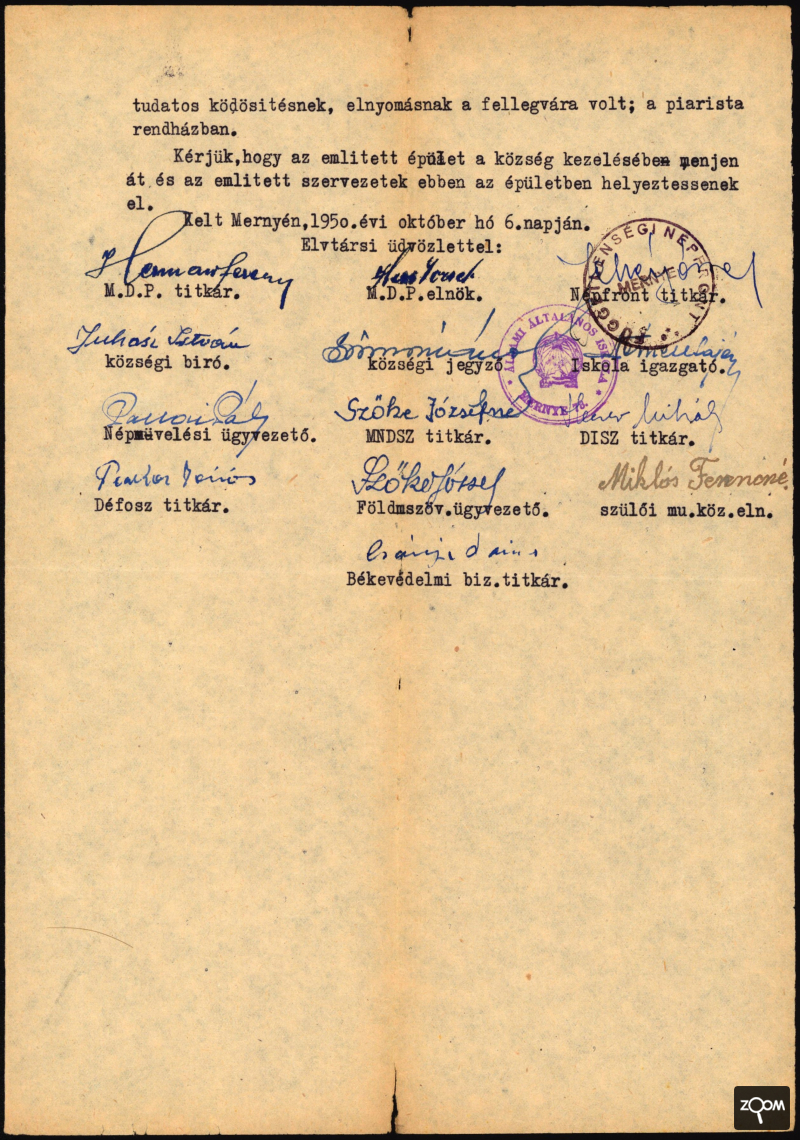 tudatos ködösitésnek, elnyomásnak a fellegvára volt; a piarista
rendházban.
Kérjük,hogy az emlitett épület a község kezelésében menjen
át és az emlitett szervezetek ebben az épületben helyeztessenek
el.
Kelt Mernyén,195o.évi október hó 6.napján.
Elvtársi üdvözlettel:
Herman Ferenc
M.D.P. titkár. M.D.P.elnök. Népfront titkár.
FÜGGETLENSÉGI NÉPFRONT MERNYE
Juhász István
községi biró. községi jegyző Iskola igazgató.
ÁLLAMI ÁLTALÁNOS ISKOLA MERNYE
Pál Szőke Józsefné Mihály
Népmüvelési ügyvezető. MNDSZ titkár. DISZ titkár.
János Szőke József Miklós Ferencné
Défosz titkár. Földmszöv.ügyvezető. szülői mu.köz.eln.
Békevédelmi biz.titkár.
ZOOM